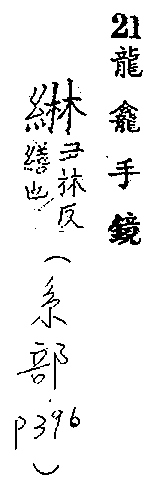 21龍龕手鏡
綝丑林反
繕也
(系部
P396)